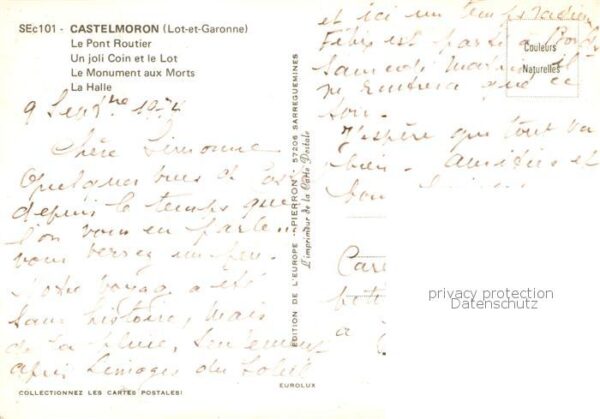 SEc101 - CASTELMORON (Lot-et-Garonne)
Le Pont Routier
Un joli Coin et le Lot
Le Monument aux Morts
La Halle
9 Sept bre 1974
Chère Simonne
Quelques vues de Cas
depuis le temps que
l'on vous en parle...
vous verrez un peu.
Notre voyage a été
sans histoire, mais
de la pluie, seulement
après Limoges du Soleil
COLLECTIONNEZ LES CARTES POSTALES!
EDITION DE L'EUROPE "PIERRON" 57206 SARREGUEMINES
L'imprimeur de la Carte Postale
EUROLUX
et ici un temps radieux
Félix est parti à
samedi matin il
ne rentrera que ce
soir.
J'espère que tout va
bien. Amitiés et
bons
Couleurs
Naturelles
Car
a
privacy protection
Datenschutz